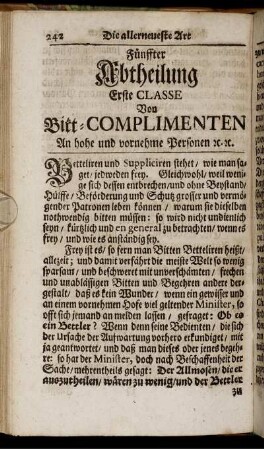 242 Die allerneueste Art
Fünffter
Abtheilung
Erste CLASSE
Von
Bitt-COMPLIMENTEN
An hohe und vornehme Personen ꝛc.ꝛc.
Betteliren und Suppliciren stehet, wie man sa-
get, jedweden frey. Gleichwohl, weil weni-
ge sich dessen entbrechen, und ohne Beystand,
Hülffe, Beförderung und Schutz grosser und vermö-
gender Patronen leben können, warum sie dieselben
nothwendig bitten müssen: so wird nicht undienlich
seyn, kürtzlich und en general zu betrachten, wenn es
frey, und wie es anständig sey.
Frey ist es, so fern man Bitten Betteliren heißt,
allezeit; und damit verfährt die meiste Welt so wenig
sparsam, und beschweret mit unverschämten, frechen
und unablässigen Bitten und Begehren andere der-
gestalt, daß es kein Wunder, wenn ein gewisser und
an einem vornehmen Hofe viel geltender Minister, so
offt sich jemand an melden lassen, gefraget: Ob es
ein Bettler? Wenn denn seine Bedienten, die sich
der Ursache der Aufwartung vorhero erkundiget, mit
ja geantwortet, und daß man dieses oder jenes begeh-
re: so hat der Minister, doch nach Beschaffenheit der
Sache, mehrentheils gesagt: Der Allmosen, die er
auszutheilen, wären zu wenig, und der Bettler
zu